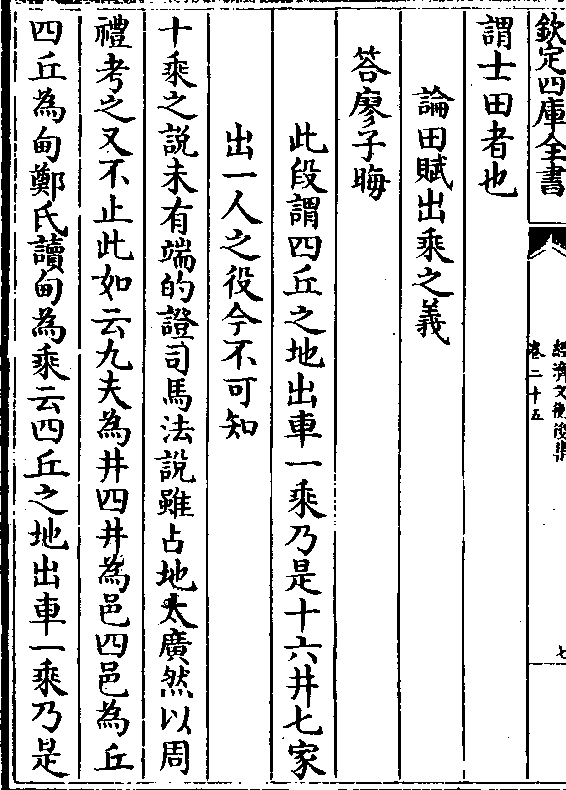 欽定四庫全書
經濟文衡後集
卷二十五
七
謂士田者也
論田賦出乘之義
荅廖子晦
此段謂四丘之地出車一乘乃是十六井七家
出一人之役今不可知
十乘之說未有端的證司馬法說雖占地太廣然以周
禮考之又不止此如云九夫為井四井為邑四邑為丘
四丘為甸鄭氏讀甸為乘云四丘之地出車一乘乃是